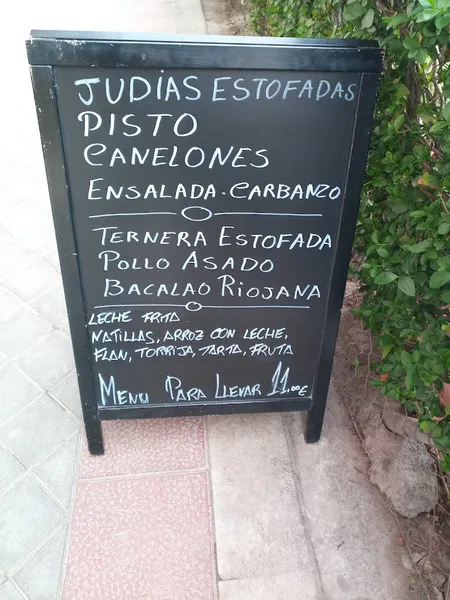 JUDÍAS ESTOFADAS
PISTO
CANELONES
ENSALADA-GARBANZO
TERNERA ESTOFADA
POLLO ASADO
BACALAO RIOJANA
LECHE FRITA
NATILLAS, ARROZ CON LECHE,
FLAN, TORRIJA, TARTA, FRUTA
MENU PARA LLEVAR 11,00€